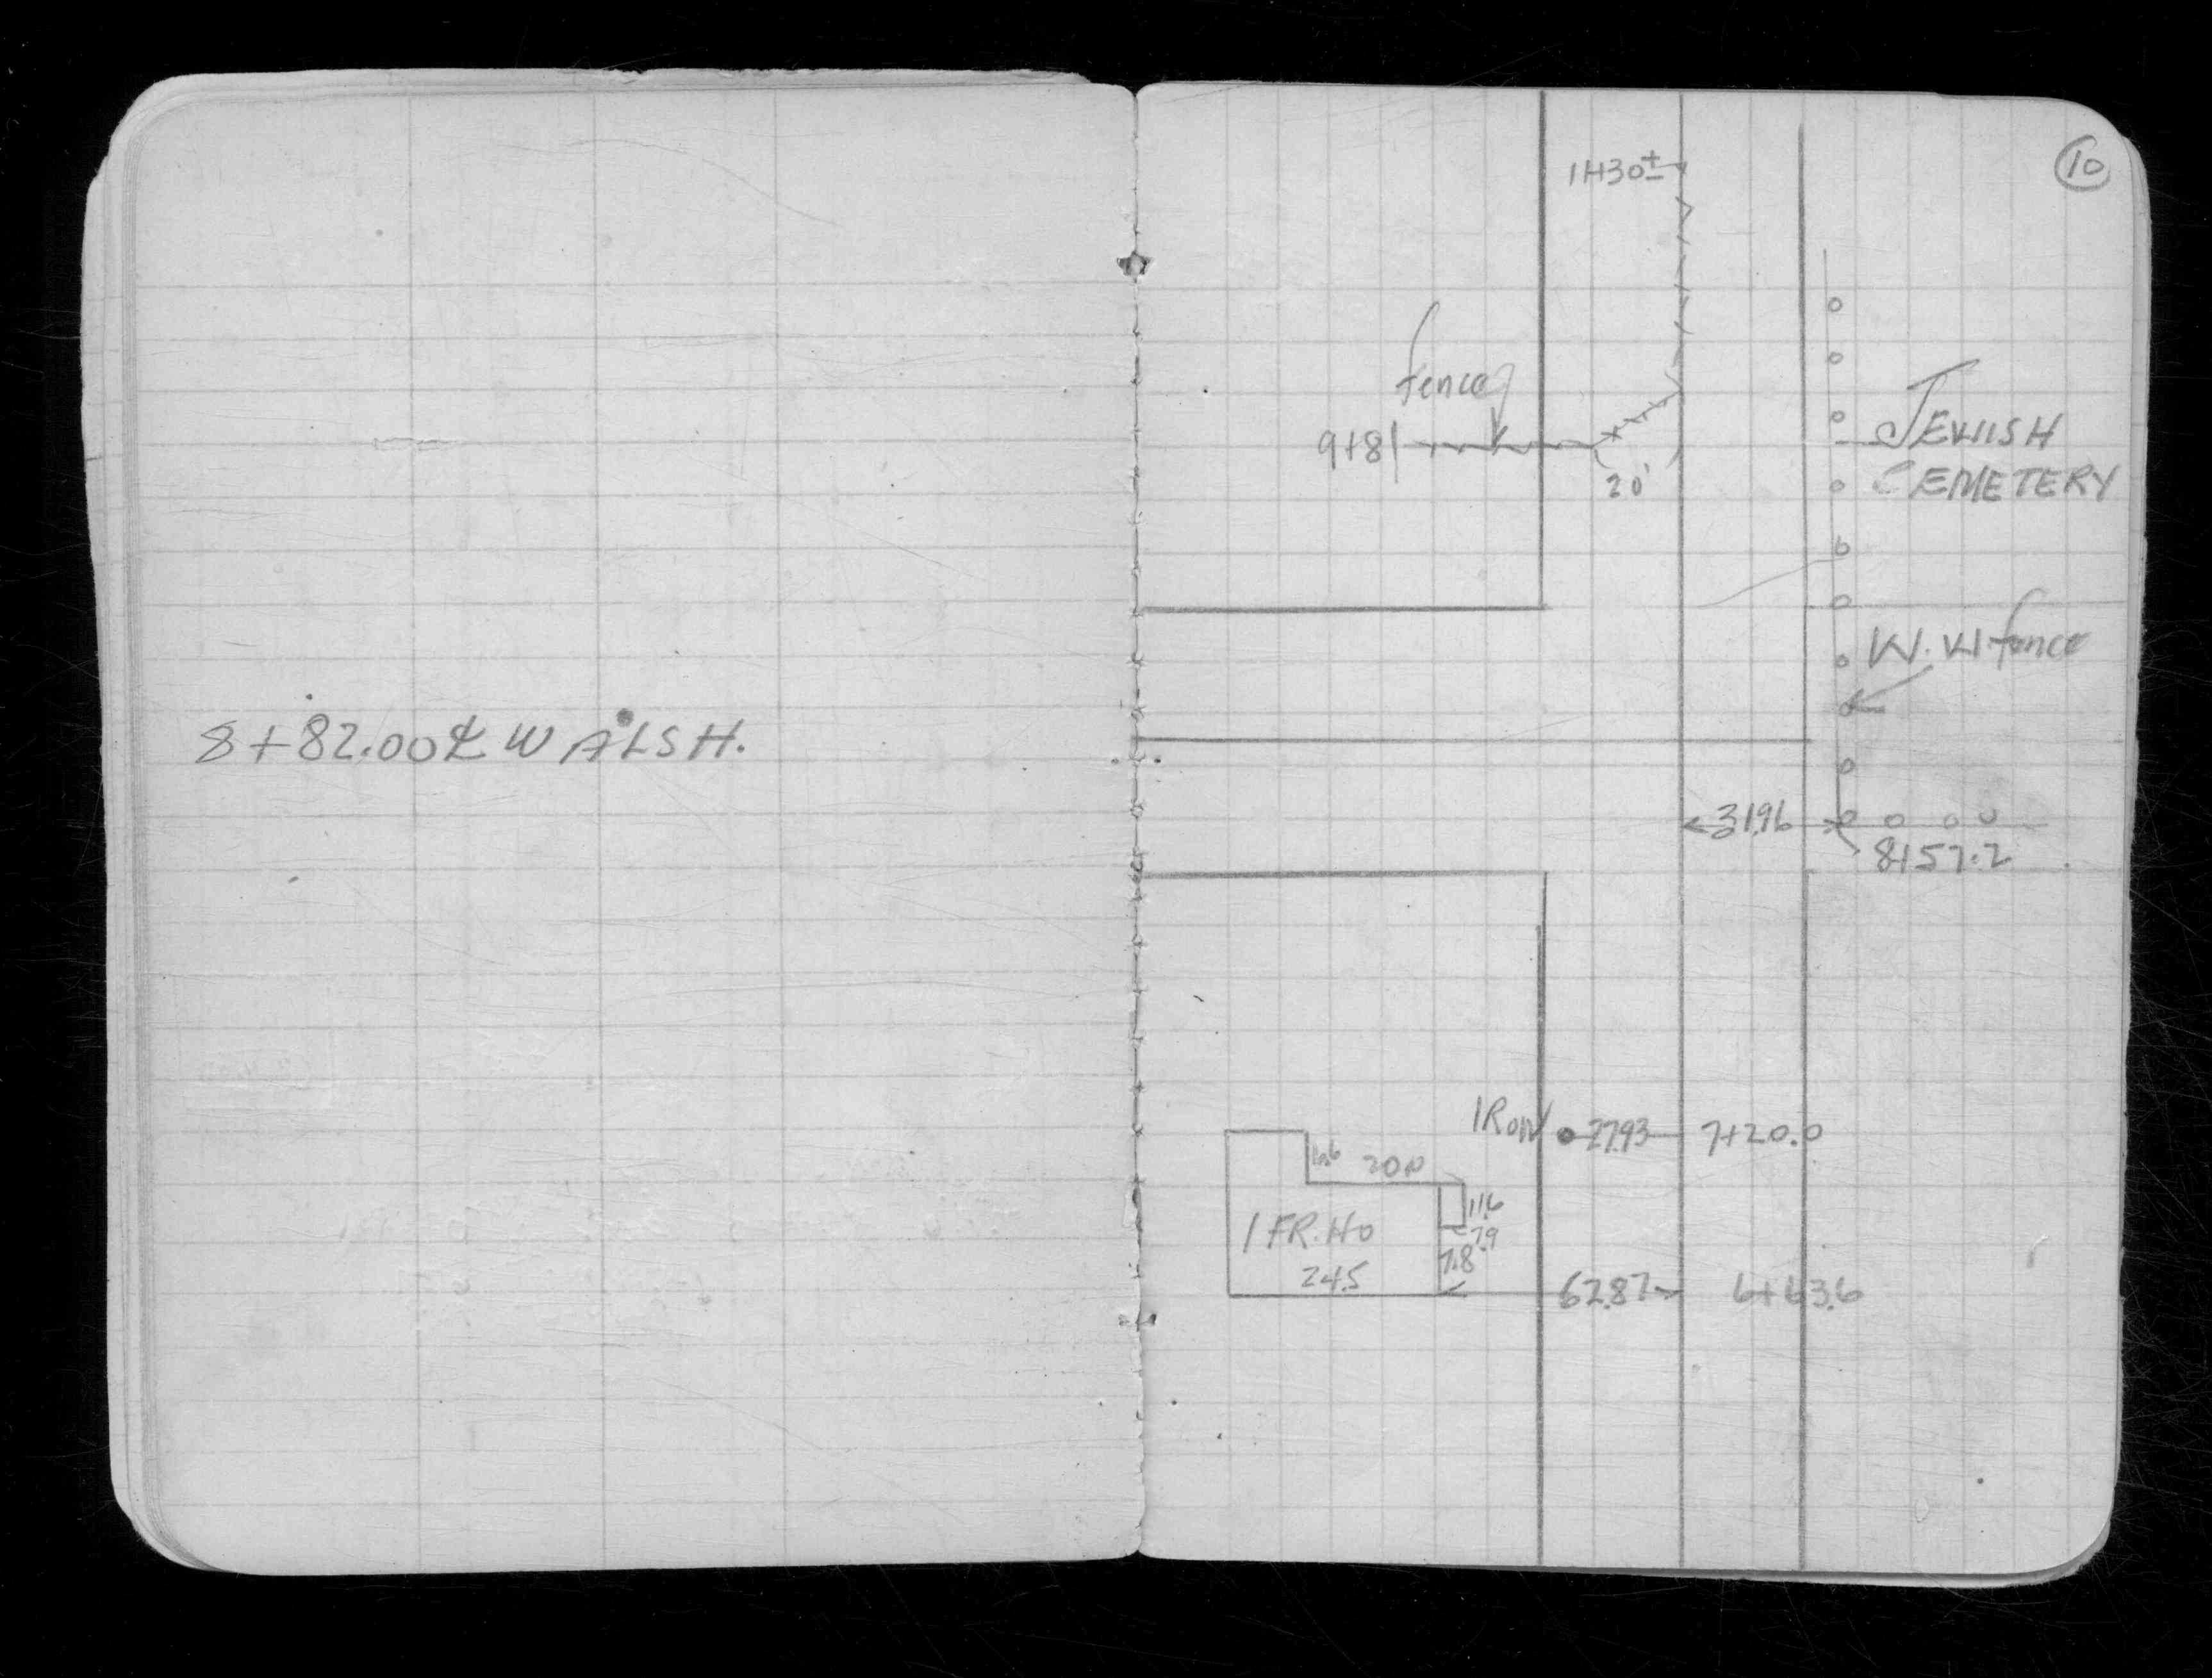 8+82.00 ℄ WALSH.
10
1H30±
fence
9+81
20'
JEWISH
CEMETERY
W.W. fence
31.96
8+57.2
IRON
27.93
7+20.0
20.0
11.6
1 FR. HO
7.9
7.8
24.5
62.87
6+63.6